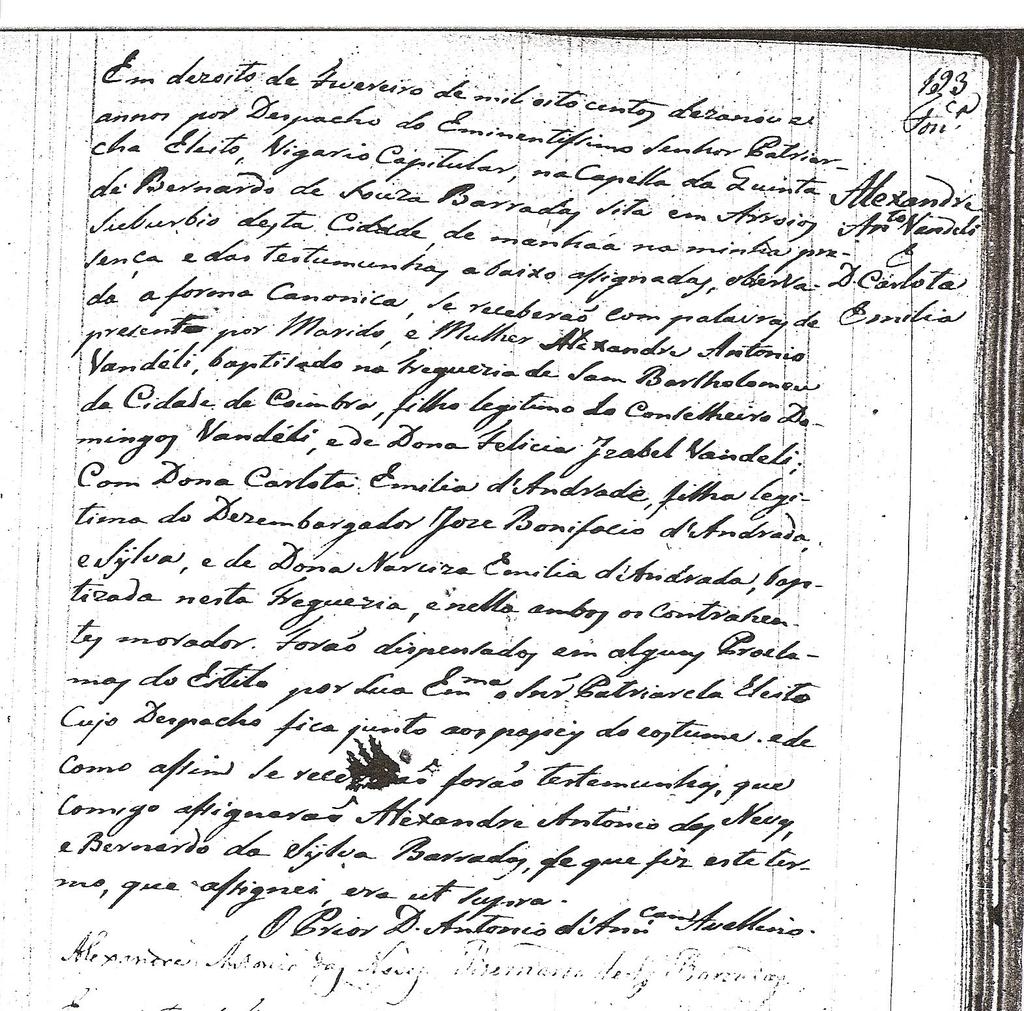 193
Em dezoito de Fevereiro de mil oito centos dezanove
annos por Despacho do Eminentissimo Senhor Patriar-
cha Eleito, Vigario Capitular, na Capella da Quinta
de Bernardo de Souza Barradas sita em Arroios
Suburbio desta Cidade, de manháa na minha pre-
sença e das testumunhas abaixo assignadas, observa-
da a forma Canonica, se receberaõ com palavras de
presente por Marido, e Mulher Alexandre Antonio
Vandéli, baptisado na Freguezia de Sam Bartholomeu
da Cidade de Coimbra, filho legitimo do Conselheiro Do-
mingos Vandéli, e de Dona Felicia Izabel Vandeli;
Com Dona Carlota Emilia d'Andrade, filha legi-
tima do Dezembargador Joze Bonifacio d'Andrada,
e Sylva, e de Dona Narciza Emilia d'Andrada, bap-
tizada nesta Freguezia, e nella ambos os contrahen-
tes morador. Foraõ dispensados em alguns Procla-
mas do Estilo por Sua Em.ma o Snr. Patriarcla Eleito
Cujo Despacho fica junto aos papeis do costume. e de
como assim se receberaõ foraõ testemunhas, que
comigo assignaraõ Alexandre Antonio das Neves,
e Bernardo da Sylva Barradas, de que fiz este ter-
mo, que assignei, era ut supra.
O Prior D. Antonio d'Ann.cam Avellino.
Alexandre Antonio das Neves Barradas
Alexandre
Anto. Vandeli
E
D. Carlota
Emilia